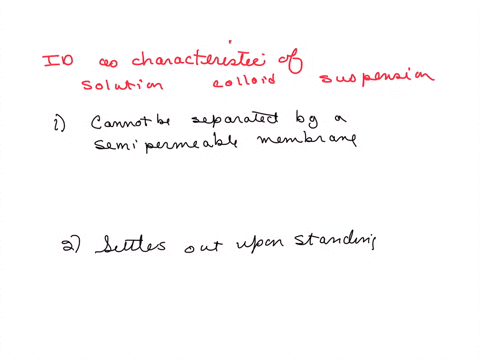 ID as characteristic of
solution colloid suspension
1) Cannot be separated by a
semipermeable membrane
2) Settles out upon standing